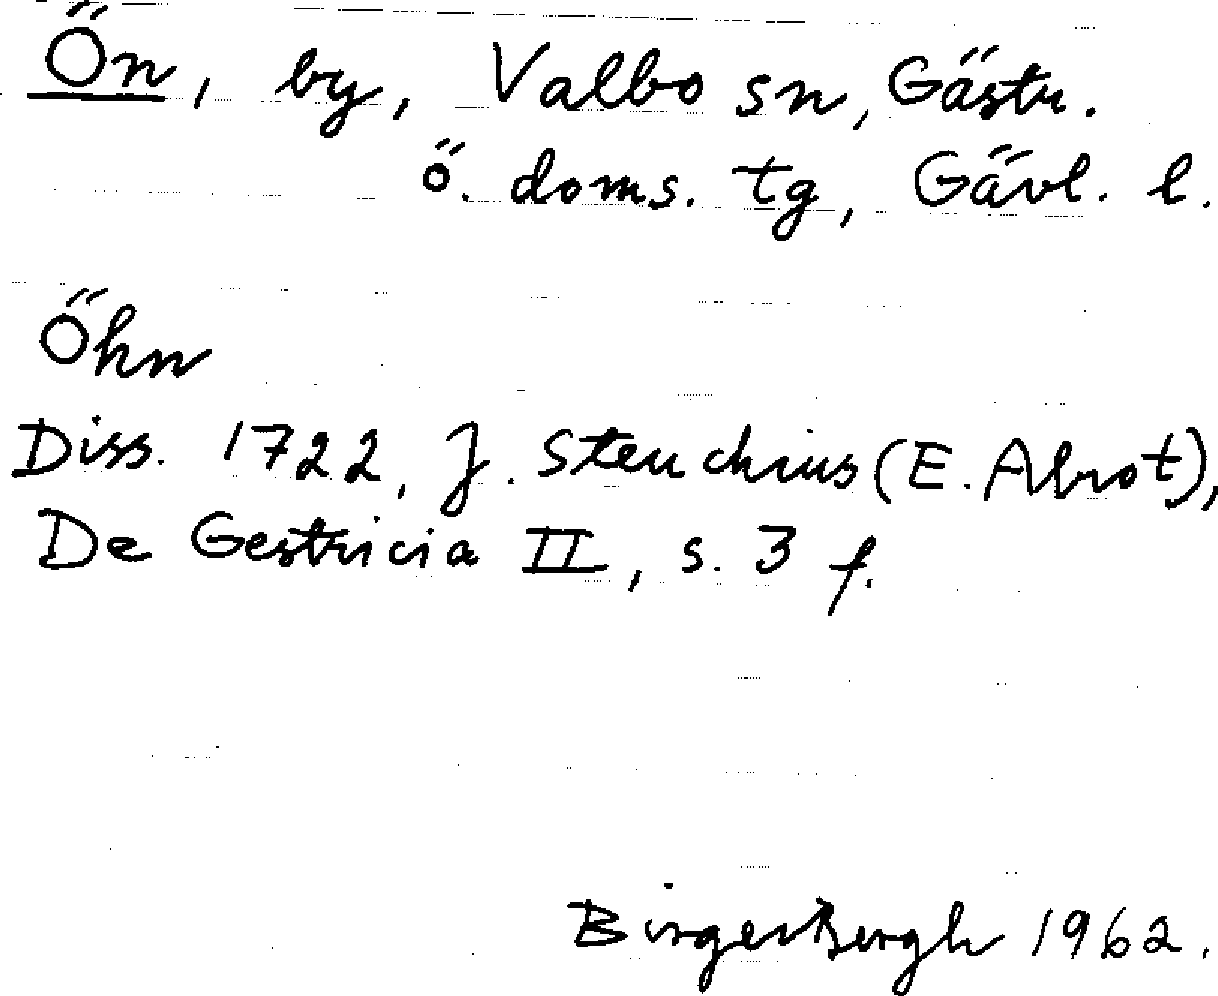 Ön, by, Valbo sn, Gästr.
ö. doms. tg, Gävl. l.
Öhn
Diss. 1722, J. Steuchius (E. Abrot),
De Gestricia II, s. 3 f.
Birger Bergh 1962.